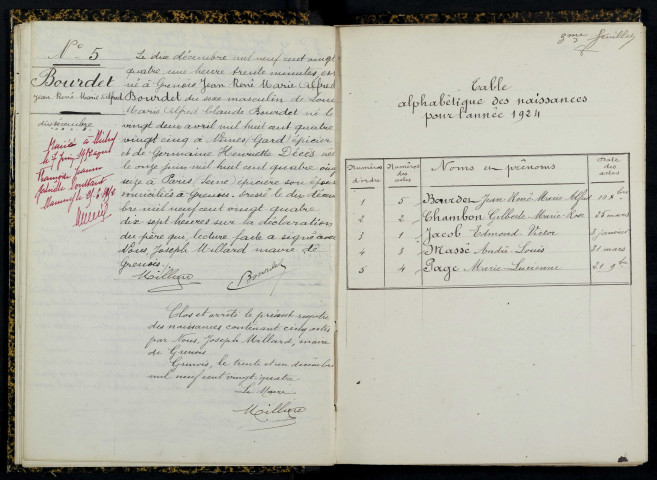 N° 5
Bourdet
Jean René Marie Alfred
dix décembre
Le dix décembre mil neuf cent vingt
quatre une heure trente minutes, est
né à Grenois Jean René Marie Alfred
Bourdet du sexe masculin de Louis
Marie Alfred Claude Bourdet né le
vingt deux avril mil huit cent quatre
vingt cinq à Nîmes (Gard) épicier
et de Germaine Henriette Décès née
le onze juin mil huit cent quatre
seize à Paris, Seine) épicière son épouse
domiciliés à Grenois. Dressé le dix décem
bre mil neuf cent vingt quatre
dix sept heures sur la déclaration
du père qui, lecture faite a signé avec
Nous, Joseph Millard maire de
Grenois.
Bourdet
Clos et arrêté le présent registre
des naissances contenant cinq actes
par Nous, Joseph Millard, maire
de Grenois
Grenois, le trente et un décembre
mil neuf cent vingt quatre
Le Maire
3me feuillet
Table
alphabétique des naissances
pour l'année 1924
Numéros d'ordre Numéros des actes Noms et prénoms Date des actes
1 5 Bourdet Jean René Marie Alfred 10 Xbre
2 2 Chambon Gilberte Marie Rose 26 mars
3 1 Jacob Edmond Victor janvier
4 3 Massé André Louis 31 mars
5 4 Page Marie Lucienne 21 9bre